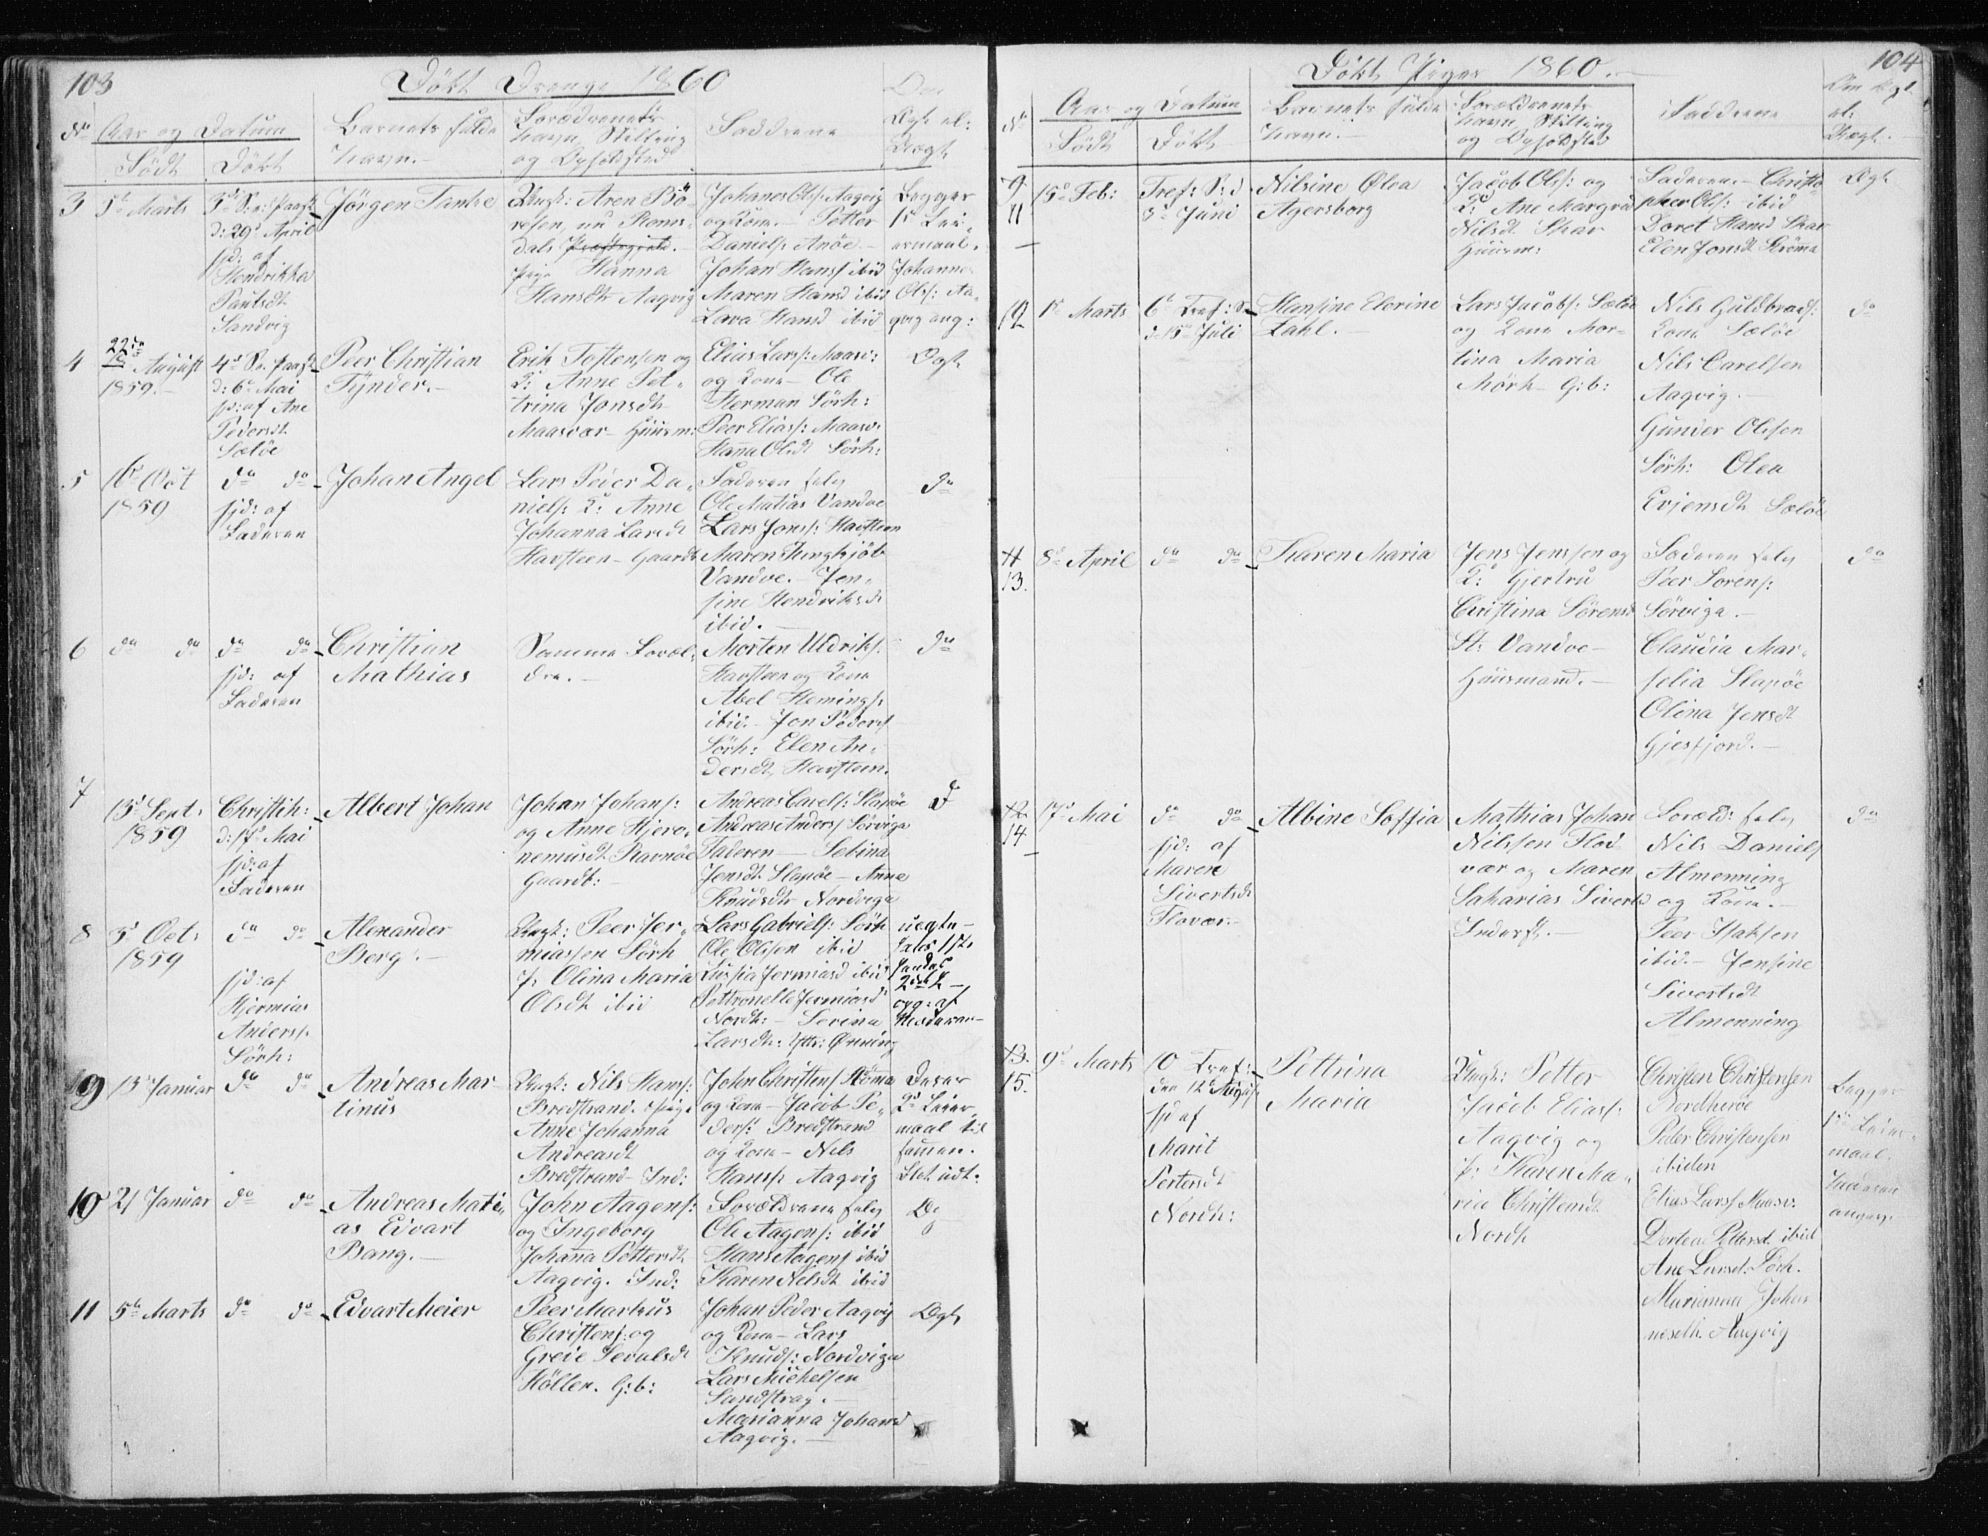 103
Døbt Drenge 1860
No
Aar og Datum
Født Døbt
Barnets fulde
Navn.-
Forældrenes
Navn Stilling
og Opholdsted
Fadderne
Om
Ægt. el:
Uægt.
3
5te Marts
d: 29d April
hjd: af
Hendrikka
Paulsdt
Sandvig
Jørgen Tanke
Uægt: Aren Bö-
resen, nu Roms-
dals
Pige Hanna
Hansdtr Aagvig
Johanes Ols: Aagvig
og Kone. Petter
Daniels Anöe -
Johan Hanss ibid
Maren Hansd ibid
Lava Hansd ibid
Begges
1st Lei-
ermaal.
Johannes
Ols: Aa-
gvig ang:
4
22de
August
1859.-
4d S. e. Paaske
d: 6d Mai
hjd: af Ane
Pedersdt
Sæløe
Peer Christian
Tynder.-
Erik Tostensen og
K: Anne Pet-
trina Jonsdt
Maasvær - Huusm:
Elias Larss: Maasv:
og Kone - Ole
Herman Sörh:
Peer Eliass: Maasv:
Hanna Olsdt Sörh:
Ægt.
5
16d Oct
1859
do do
hjd: af
Faderen
Johan Angel
Lars Peier Da-
niels: K: Anne
Johanna Larsdt
Havsteen - Gaardb
Faderen selv
Ole Matias Vandve
Lars Jonss: Havsteen
Maren Ingebjöb
Vandve. - Jen-
sine Hendriksdt
ibid. -
do
6
do do
do do
hjd: af
Faderen
Christian
Mathias
Samme Foræl-
dre. -
Morten Uldriks:
Havsteen og Kone
Abel Hemings:
ibid. - Jon Peders
Sörh: Elen An-
dersdt Havsteen.
do
7
13d Sept.
1859
Christih:
d: 17d Mai
hjd: af
Faderen
Albert Johan
Johan Johans:
og Anne Hjero-
nemusdt Ravnöe
Gaardb: -
Andreas Carels: Slapöe
Andreas Anders Sörviga
Faderen - Sebina
Jensdt Slapöe - Anne
Knudsdt Nordviga
do
8
3d Oct.
1859
do do
hjd: af
Hjermias
Anderss.
Sörh:
Alexander
Berg. -
Uægt: Peer Jer-
miassen Sörh
p: Olina Maria
Olsdt ibid
Lars Gabriels: Sörh
Ole Olsen ibid
Lussia Jermiasd ibid
Pettronelle Jermiasd:
Nordh: - Serina
Larsdt: Ytr: Ønning
uegte-
2det
opg: af
Moderen
9
13d Januar
do do
Andreas Mar-
tinus
Uægt: Nils Hans:
Bredstrand. Pige
Anne Johanna
Andreasdt
Bredstrand - Ind:
John Christens Hema
og Kone - Jacob Pe-
ders: Bredstrand
og Kone - Nils
Hans: Aagvig
Deres
2d Leier-
maal til
samen.
10
21 Januar
do do
Andreas Mati-
as Edvart
Bang. -
John Aagens:
og Ingeborg
Johanna Pettersdt
Aagvig. Ind:
Forældrene selv
Ole Aagens: ibid
Hans Aagens ibid
Karen Nelsdt ibid
Do
11
5te Marts
do do
Edvart Meier
Peer Markus
Christens: og
Grete Sevalsdt
Höllen. G:b:
Johan Peder Aagvig
og Kone - Lars
Knuds: Nordviga
Lars Michelsen
Sandstrag. -
Marianna Johansd
Aagvig. -
Ægt
104
Døbt Piger 1860. -
No
Aar og Datum
Født Døbt
Barnets fulde
Navn. -
Forældrenes
Navn Stilling
og Opholdsted
Fadderne
Om Ægt
el:
Uægt. -
9
11
15d Feb:
Tref: S: d
3d Juni
Nilsine Ølva
Agersborg
Jacob Ols: og
K: Ane Margret
Nilsdt Skar
Huusm:
Faderen. - Christo
pher Ols: ibid
Doret Hansd Skar
Elen Jonsdt Ströma
Ægt
12
1st Marts
6te Tref: S:
d: 15d Juli
Hansine Elerine
Zahl. -
Lars Jacobs: Sæløe
og Kone Mar-
tina Maria
Mörk - G:b:
Nils Guldbrands:
Kone Sæløe
Nils Carelsen
Aagvig. -
Gunder Olsen
Sörh: Olea
Evjensdt Sæløe
do
11
13.
8d April
do do
Karen Maria
Jens Jenssen og
K: Gjertru
Christina Sörensd
St: Vandve -
Huusmand. -
Faderen selv
Peer Sorens:
Sörviga. -
Claudia Mar-
selia Slapöe
Olina Jensdt
Gjesfjord. -
do
12
14.
17d Mai
do do
hjd: af
Maren
Sivertsdt
Flovær. -
Albine Soffia
Mathias Johan
Nilssen Flo-
vær og Maren
Saharias Sivertsd
Inderst. -
Foræld: selv
Nils Daniels
Almenning
og Kone. -
Peer Isaksen
ibid. - Jensine
Sivertsdt
Almenning
do
13.
15.
9d Marts
10 Tref:
den 12d August
hjd af
Marit
Pettersdt
Nordh:
Pettrina
Maria
Uægt: Petter
Jacob Eliass:
Aagvig og
p: Karen Ma-
rie Christensdt
Nordh
Christen Christensen
Nordheröe
Peder Christensen
ibiden
Elias Larss Maasv:
Dortea Pettersd ibid
Ane Larsdt: Sörh.
Marianna Johan
nesdt. Aagvig
Begges
1st Leier-
maal.
Faderen
angav.